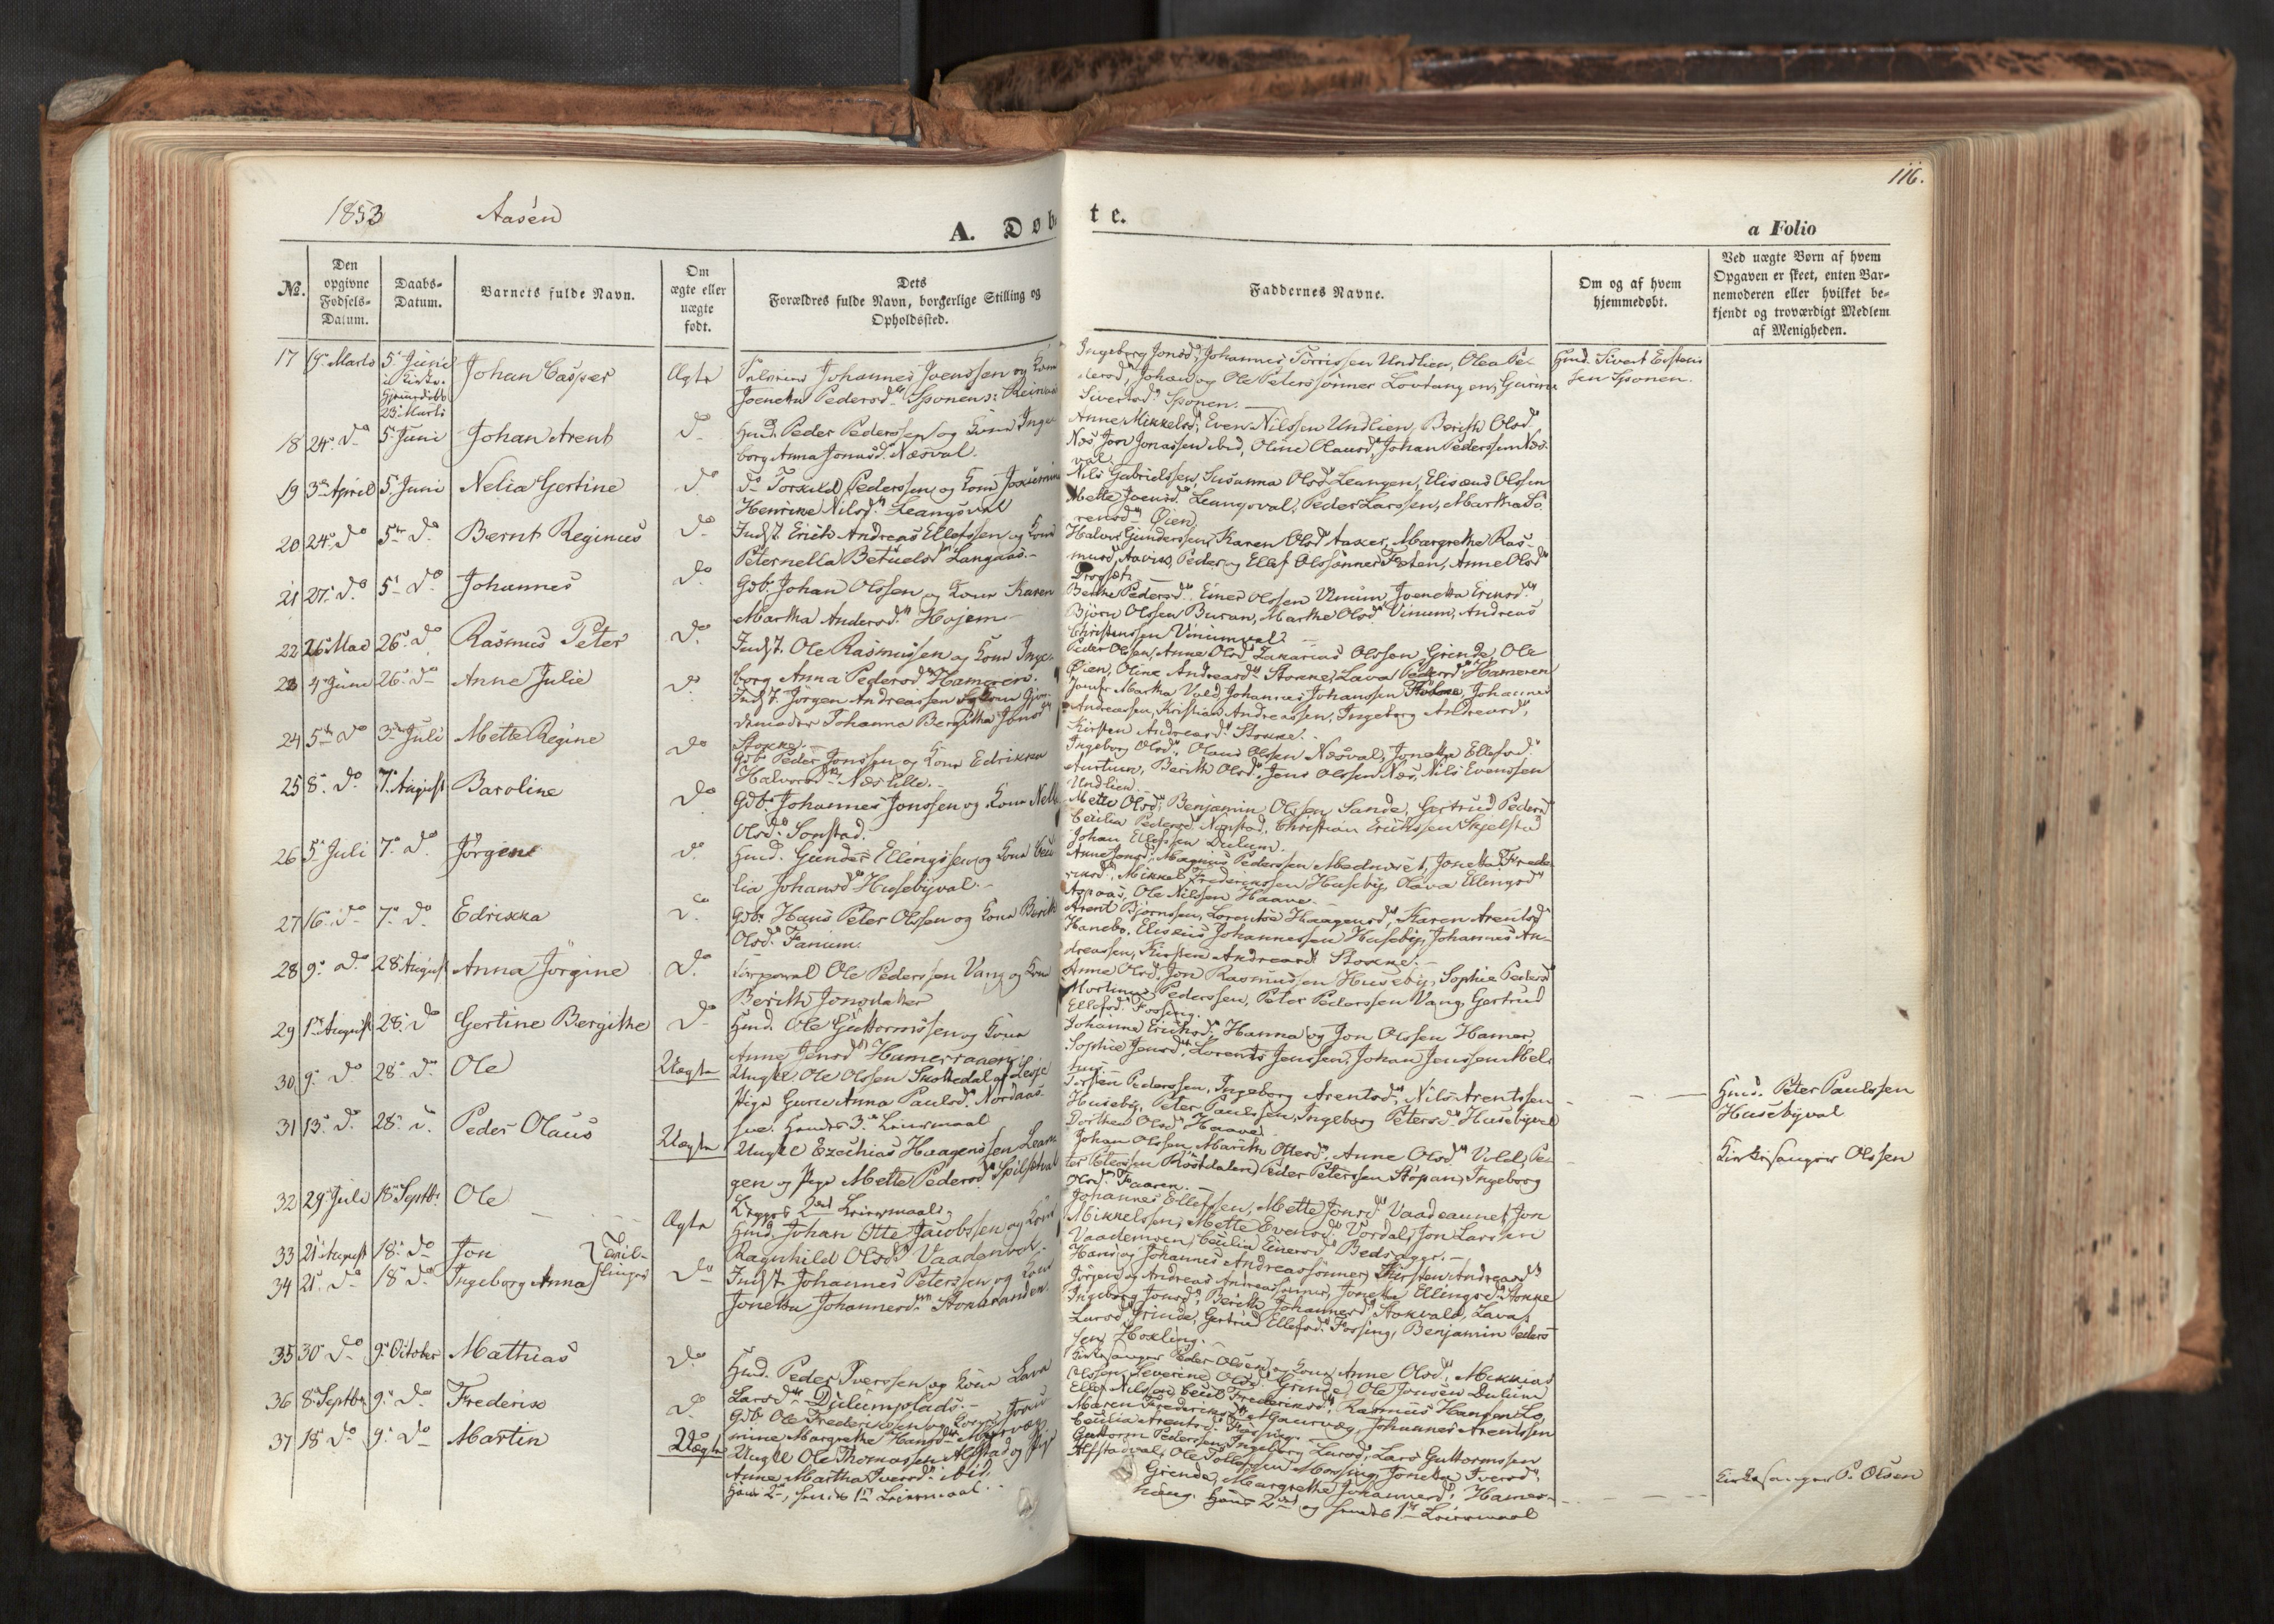 1853 Aasen
A. Døbte.
116.
a Folio
№.
Den opgivne Fødsels-Datum.
Daabs-Datum.
Barnets fulde Navn.
Om ægte eller uægte født.
Dets Forældres fulde Navn, borgerlige Stilling og Opholdssted.
Faddernes Navne.
Om og af hvem hjemmedøbt.
Ved uægte Børn af hvem Opgaven er skeet, enten Barnemoderen eller hvilket bekjendt og troværdigt Medlem af Menigheden.
17 19de Marts 5te Juni Johan Casper Ægte
Johannes Joenssen og Kone
Joenetta Pedersdtr Sponens
Ingeborg Jonsd, Johannes Torrissen Undlien, Olea Pe-
dersd, Johan og Ole Peterssønner Lovtangen, Gurine
Sivertsd Sponen.
Hmd. Sivert Eistens
sen Sponen.
18 24de do 5te Juni Johan Arent do
Hmd. Peder Pederssen og Kone Inge-
borg Anna Jonasd. Næsval.
Anne Mikkelsd, Even Nilssen Undlien, Berith Olsd.
Næs, Jon Jonassen ibid, Oline Olausd, Johan Pederssen Næs-
val.
19 3die April 5te Juni Nelia Gertine do
do Torkild Pederssen og Kone
Henrike Nilsd. Leangsval
Nils Gabrielssen, Susanna Olsd Leangen, Elisæus Olssen
Mette Joensd. Leangsval, Peder Larssen, Martha So-
rensd Øien,
20 24de do 5te do Bernt Reginus do
Indst. Erich Andreas Ellefssen og Kone
Peternella Betuelsd Langaas.
Halvor Gunderssen, Karen Olsd Aaker, Margrethe Ras-
musd, Aavik, Peder og Ellef Olssønner Fæten, Anne Olsd
21 27de do 5te do Johannes do
Gdb. Johan Olssen og Kone Karen
Martha Andersd. Hojem
Berthe Pedersd. Einer Olssen Vinum, Joenetta Eriksd.
Bjørn Olssen Buran, Marthe Olsd Vinum, Andreas
Christenssen Vinumval.
22 26de Mai 26de do Rasmus Peter do
Indst. Ole Rasmussen og Kone Inge-
borg Anna Pedersd Hameren.
Peder Olssen, Anne Olsd Zakarias Olssen Grinde, Ole
Øien, Oline Andreasd Stokke, Lava Pedersd Hameren
23 4de Juni 26de do Anne Julie do
Indst. Jørgen Andreassen
Johanna Bergitha Jonsd
Stokke.
Martha Vold, Johannes Johanssen Stokke, Johannes
Andreassen, Kristian Andreassen, Ingeborg Andreasd,
Kirsten Andreasd. Stokke.
24 5te do 3die Juli Mette Regine do
Gdb. Peder Jonssen og Kone Edrikka
Halvorsd. Næs Lille.
Ingeborg Olsd, Olaus Olssen Næsval, Jonetta Ellefsd.
Aurtun, Berith Olsd, Jens Olssen Næs, Nils Evenssen
Undlien.
25 8de do 7de August Baroline do
Gdb. Johannes Jonssen og Kone
Olsd. Sonstad.
Mette Olsd, Benjamin Olssen Sande, Gertrud Pedersd
Cecilia Pedersd Nonstad, Christian Erichssen Skjelstad
Johan Ellefssen Dulum.
26 5te Juli 7de do Jørgine do
Hmd. Gunder Ellingssen og Kone Ceci-
lia Johansd Husebyval.
Anne Jonsd, Magnus Pederssen Mednæset, Jonetta Frede-
riksd, Mikkel Frederikssen Huseby, Olava Ellingsd
Aspaas, Ole Nilssen Haave.
27 16de do 7de do Edrikka do
Gdb. Hans Peter Olssen og Kone Berith
Olsd. Fanium.
Arent Bjørnssen, Lorentse Haagensd, Karen Arentsd
Hanebo, Eliseus Johannessen Huseby, Johannes An-
dreassen, Kirsten Andreasd Stokke.
28 9de do 28de August Anna Jørgine do
Korporal Ole Pederssen Vang og Kone
Berith Jonsdatter
Anne Olsd, Jon Rasmussen Huseby, Sophie Pedersd
Mortinus Pederssen, Peter Pederssen Vang, Gertrud
Ellefsd. Fossing.
29 1ste August 28de do Gertine Bergithe do
Hmd. Ole Guttormssen og Kone
Anne Jensd Hameraaen
Johanna Eriksd, Hanna og Jon Olssen Hamar,
Sophie Jensd, Lorents Jenssen, Johan Jenssen
30 9de do 28de do Ole Uægte
Ungkl. Ole Olssen Skottedal af Lesje
Pige Guru Anna Paulsd. Nordaas.
Torsten Pederssen, Ingeborg Arentsd, Nils Arentssen
Huseby, Peter Paulssen, Ingeborg Petersd Husebyval
Dorthea Olsd Haave.
Hmd. Peter Paulssen
Husebyval
31 13de do 28de do Peder Olaus Uægte
Ungkl Ezechias Haagenssen Lean-
gen og Pige Mette Pedersd.
Begges 2det Leiermaal
Johan Olssen, Marith Ottersd, Anne Olsd Vold, Pe-
ter Peterssen Røstdalen, Peder Peterssen Stopan, Ingeborg
Olsd. Faaren.
Kirkesanger Olssen
32 29de Juli 18de Septbr. Ole Ægte
Hmd. Johan Otte Jacobssen og Kone
Ragnhild Olsd. Vaadenval.
Johannes Ellefssen, Mette Jonsd Vaadeaunet, Jon
Mikkelssen, Mette Evensd. Vordal, Jon Larssen
Vaademoen, Cecilia Einersd Bedsager.
33 21de August 18de do Jon
34 21de do 18de do Ingeborg Anna } Tvillinger do
Indst. Johannes Peterssen og Kone
Jonetta Johannesd. Stokstranden.
Hans og Johannes Andreassønner, Kirsten Andreasd
Jørgen og Andreas Andreassønner, Jonetta Ellingsd. Stokke
Ingeborg Jonsd, Berith Johannesd. Stokvald, Lava
Larsd Grinde, Gertrud Ellefsd. Fossing, Benjamin Peders-
sen Hokling.
35 30de do 9de October Mathias do
Hmd. Peder Iverssen og Kone Lava
Larsd. Dulumplads.
Kirkesanger Peder Olssen og Kone Anne Olsd, Mekkias
Olssen, Severine Olsd. Grinde, Ole Jonssen Dulum
36 8de Septbr. 9de do Frederik do
Gdb. Ole Frederikssen og Kone
Margrethe Hansd
Ellef Nilssen, Cecil. Frederiksd, Rasmus Hanssen Lo,
Maren Frederiksd Maurvæg, Johannes Arentssen
Cecilia Arentsd. Fossing.
37 18de do 9de do Martin Uægte
Ungkl Ole Thomassen Alfstad og Pige
Anne Martha Iversd. ibid.
Hans 2det, hendes 1ste Leiermaal.
Guttorm Pederssen, Ingeborg Larsd, Lars Guttormssen
Alfstadval, Ole Tollefssen Mossing, Jonetta Iversd,
Grinde, Margrethe Johannesd. Hamar-
haug. Hans 2det og hendes 1ste Leiermaal
Kirkesanger P. Olsen